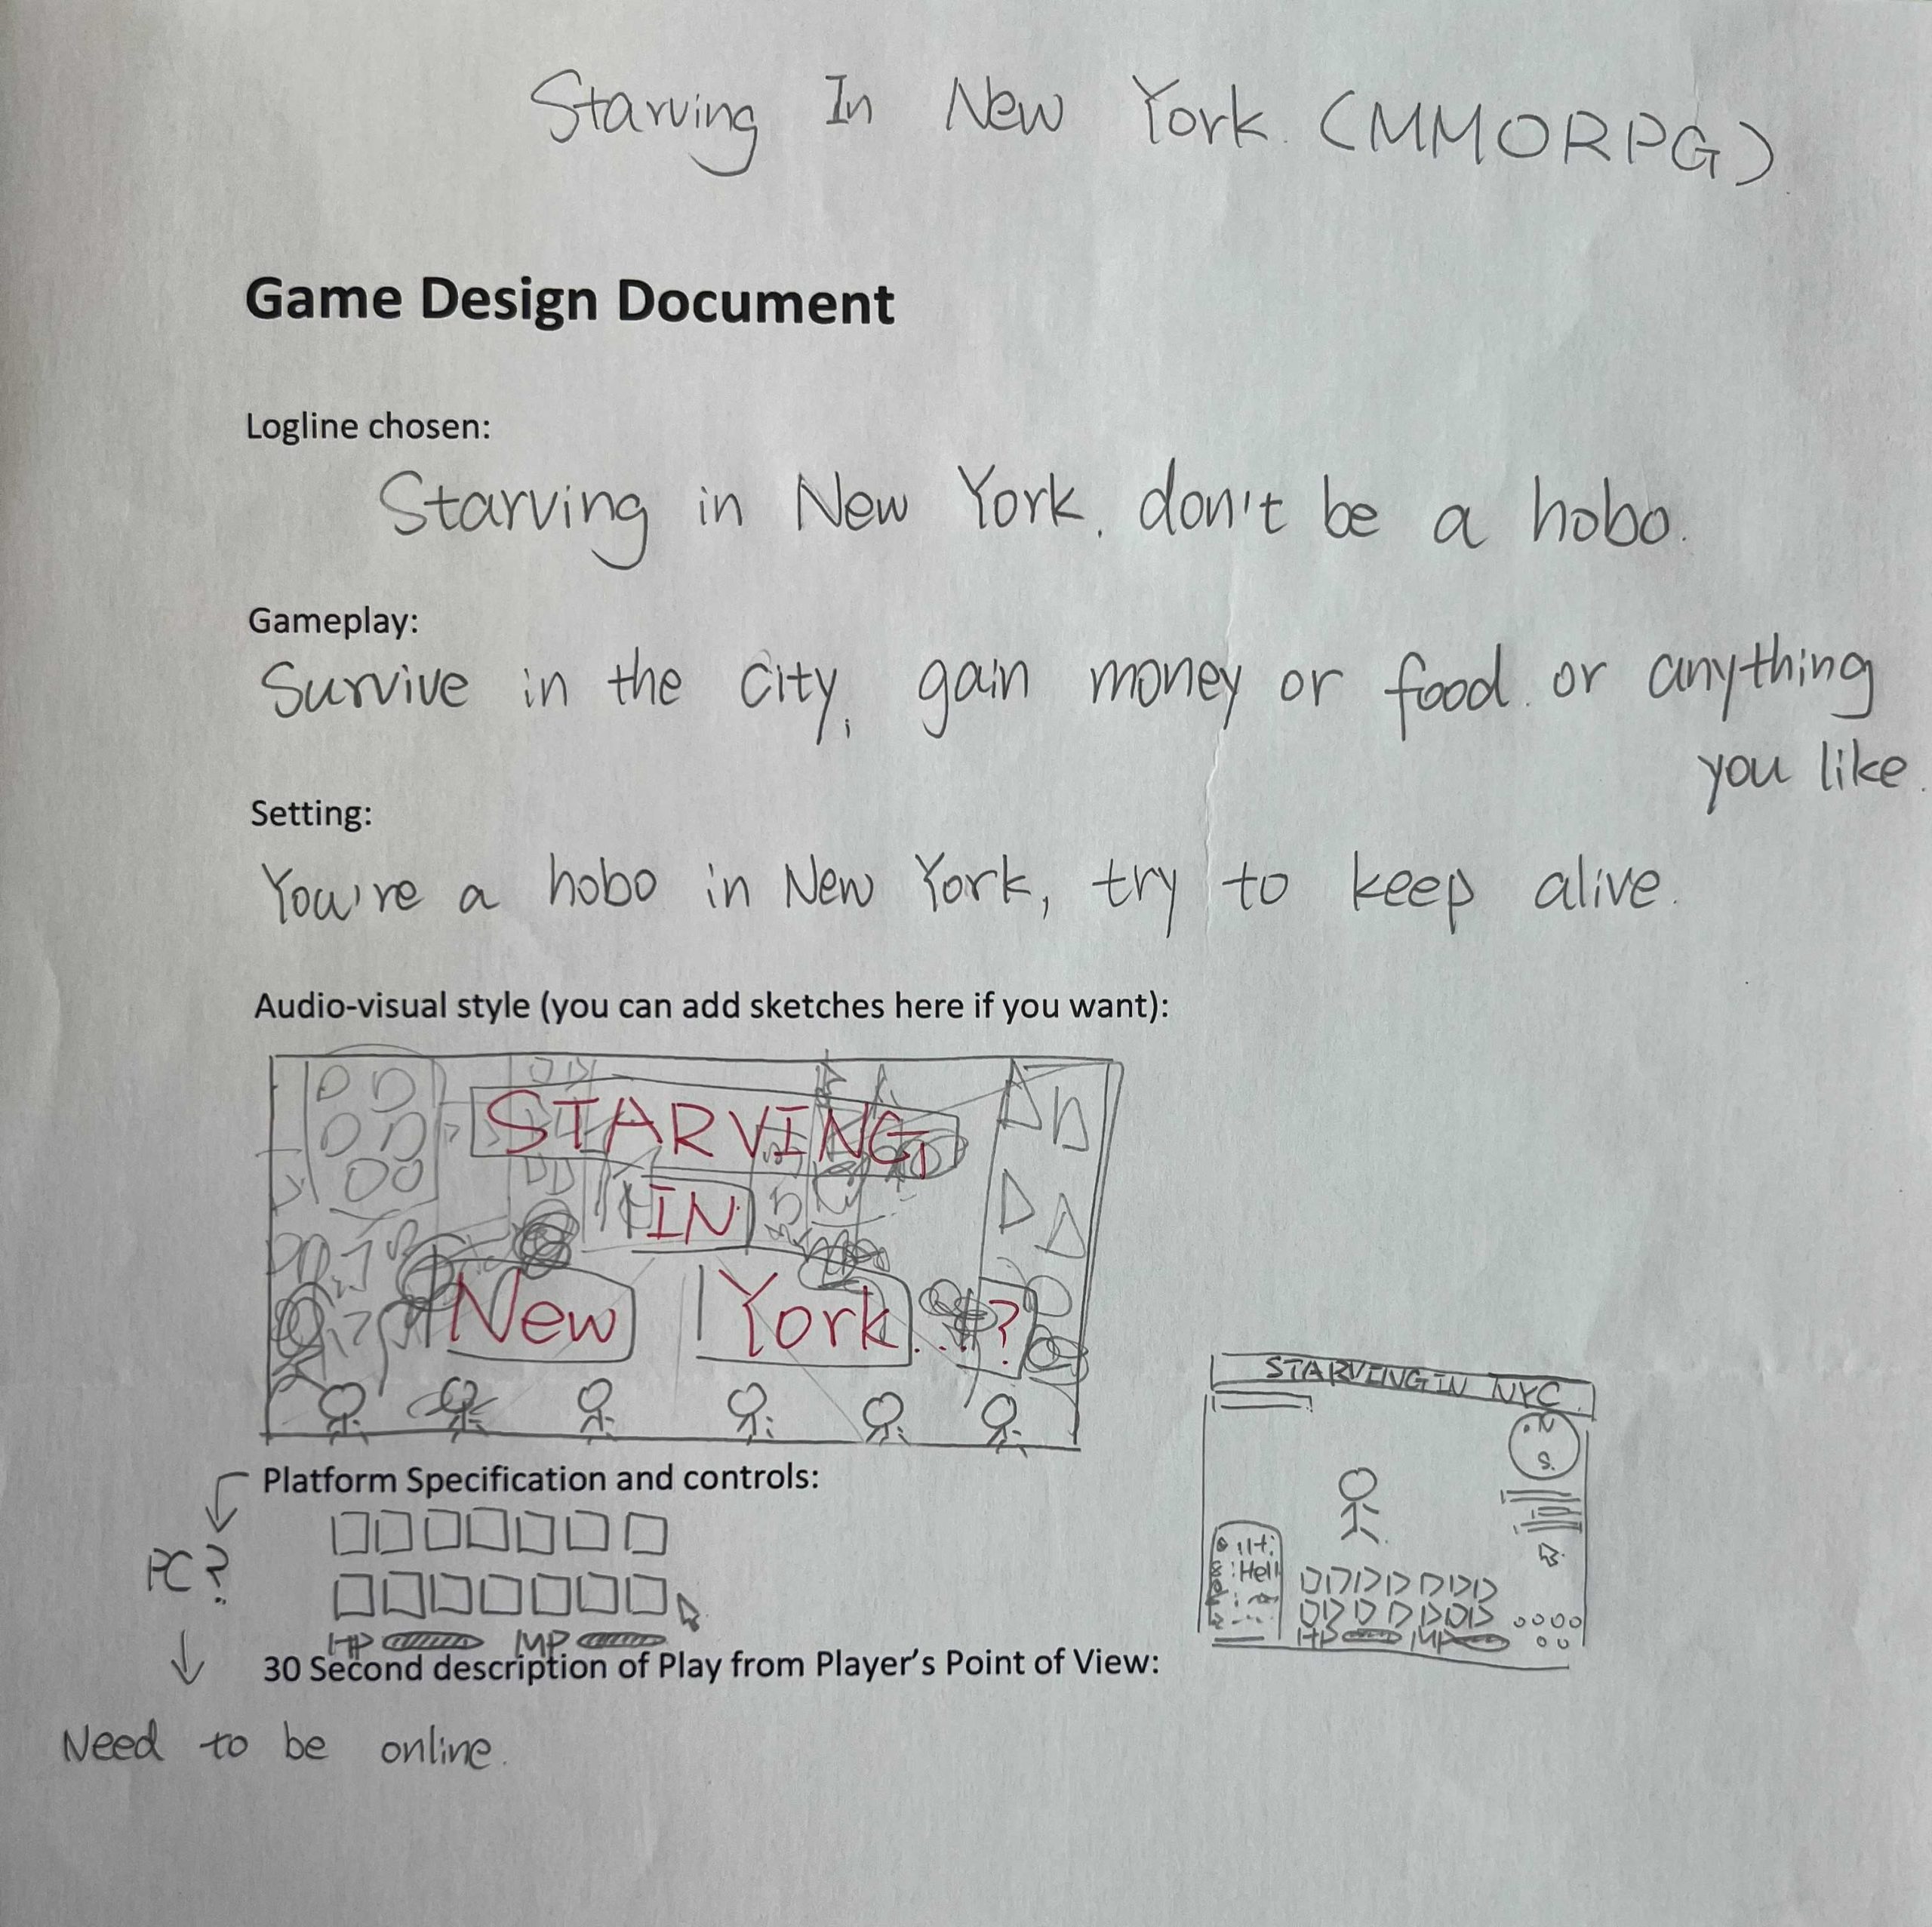 Starving In New York. (MMORPG)
Game Design Document
Logline chosen:
Starving in New York. don't be a hobo.
Gameplay:
Survive in the city, gain money or food. or anything
you like.
Setting:
You're a hobo in New York, try to keep alive.
Audio-visual style (you can add sketches here if you want):
STARVING
IN
New York...?
STARVING IN NYC.
N
S.
Platform Specification and controls:
PC?
HP MP
Hi.
: Hell
HP MP
30 Second description of Play from Player's Point of View:
Need to be online.